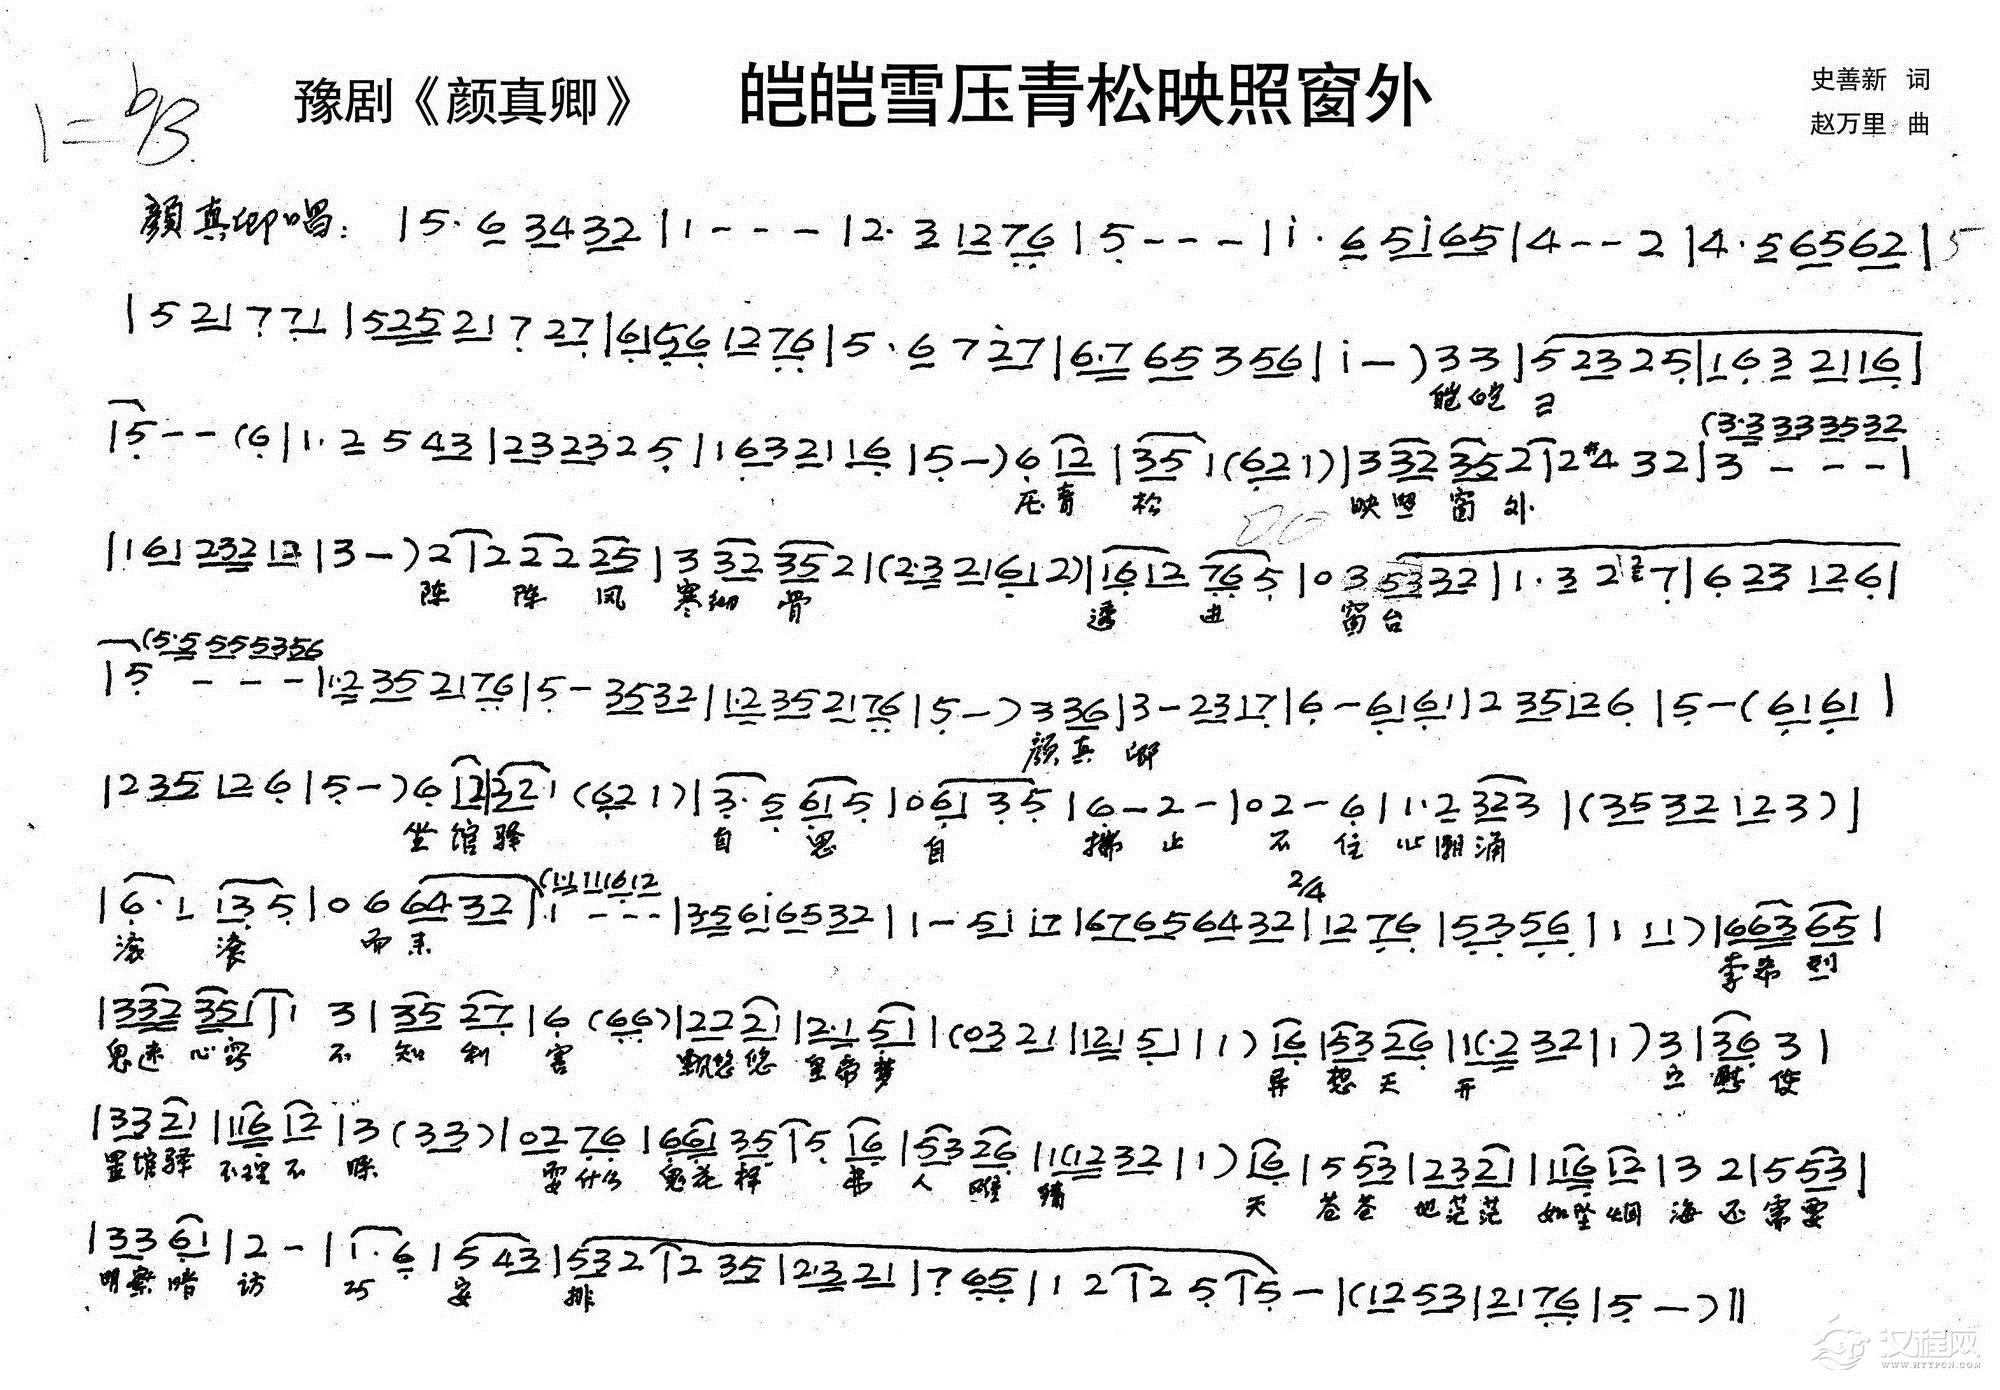 1=♭B
豫剧《颜真卿》 皑皑雪压青松映照窗外
史善新 词
赵万里 曲
颜真卿唱: |5·6 3432|1---|2·3 1276|5---|i·6 5i65|4--2|4·56562|5
|5 21 7 71|52521 7 27|6156 1276|5·6 7 27|6·7 65 356|i-)33|5 2325|1632116|
皑皑
|5--(6|1·2 5 43|2323 2 5|1632116|5-)6 12|35 1(621)|3 32 352|2#4 32|3---|
(3·3333532
压青 松 映照 窗外
|161 23212|3-)2|2 22 25|3 32 352|(2·321612)|1612 765|0 3 5332|1·3 27|6 23 126|
陈 陈 风 寒彻 骨 透 进 窗台
(5·5555356
|5---|1·2352176|5-3532|1·2352176|5-)3 36|3-2317|6-6161|2 35126|5-(6161|
颜真 卿
|235 126|5-)6 12|221(621)|3·5 615|0 61 35|6-2-|02-6|1·2 323|(3532 123)|
坐馆 驿 自 思 自 揣 止 不 住 心潮涌
|6·1 135|0 6 6432|1---|3·56i6532|1-5i i7|67656432|1276|5356|1 11)|663 65|
(1·1 11612
2/4
滚 滚 而来 李希烈
|332 351|1 3|35 27|6(66)|2221|2·1 51|(0321|1215|1 1)16|53 26|1(·232|1)3|36 3|
鬼迷心窍 不 知 利 害 飘悠悠 皇帝梦 异 想 天 开 慰 使
|3321|116 12|3(33)|02 76|661 35|5 16|53 26|1(1232|1)16|5 53|2321|116 12|3 2|5 53|
馆驿 不理不 睬 耍什么 鬼花样 人 难 猜 天 苍苍 地茫茫 如坠烟 海 还 需要
|33 61|2-|1·6|5 43|532|2 35|2·321|7 65|1 2|2 5|5-|(1253|2176|5-)||
明察暗 访 巧 安 排
汉程网
WWW.HTTPCN.COM